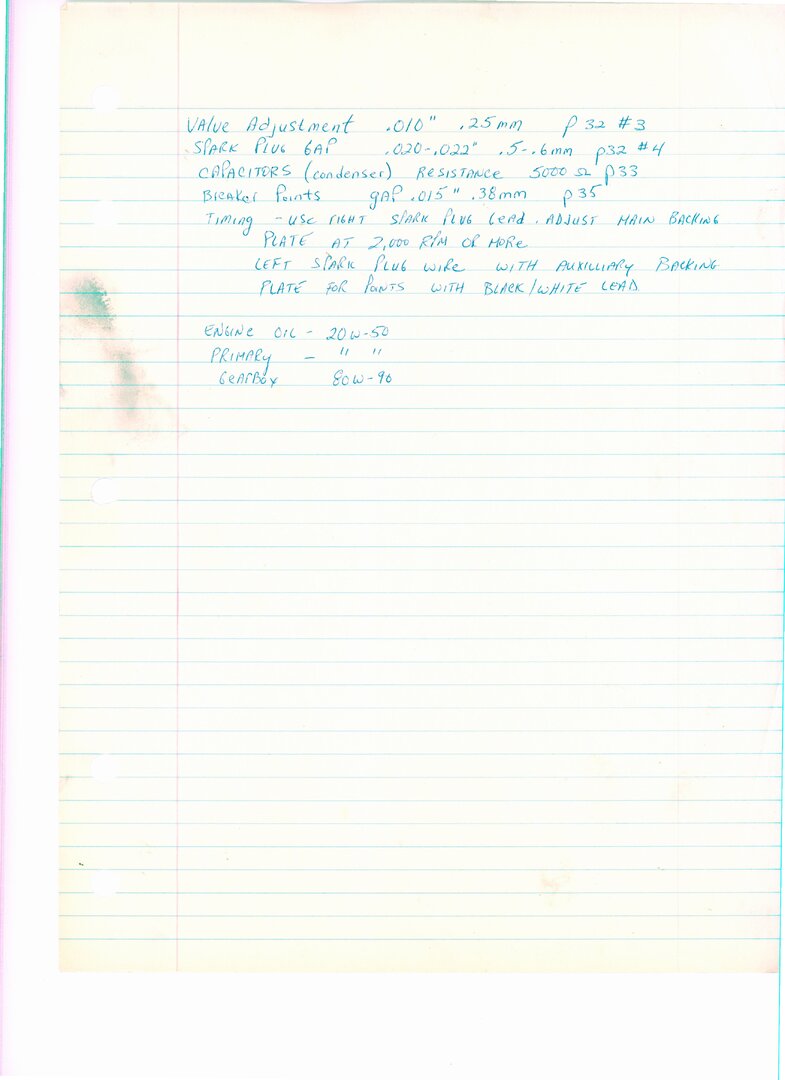 VAlve Adjustment .010" .25mm p 32 #3
SPARK PLUG GAP .020-.022" .5-.6mm p32 #4
CAPACITORS (condenser) RESISTANCE 5000 Ω p33
Breaker Points gAP .015" .38mm p35
Timing - use right SPARK PLUG Lead. ADJUST MAIN BACKING
PLATE AT 2,000 RPM OR MORE
LEFT SPARK PLUG WIRE WITH AUXILLIARY BACKING
PLATE FOR POINTS WITH BLACK/WHITE LEAD
ENGINE OIL - 20W-50
PRIMARY - " "
GEARBOX 80W-90